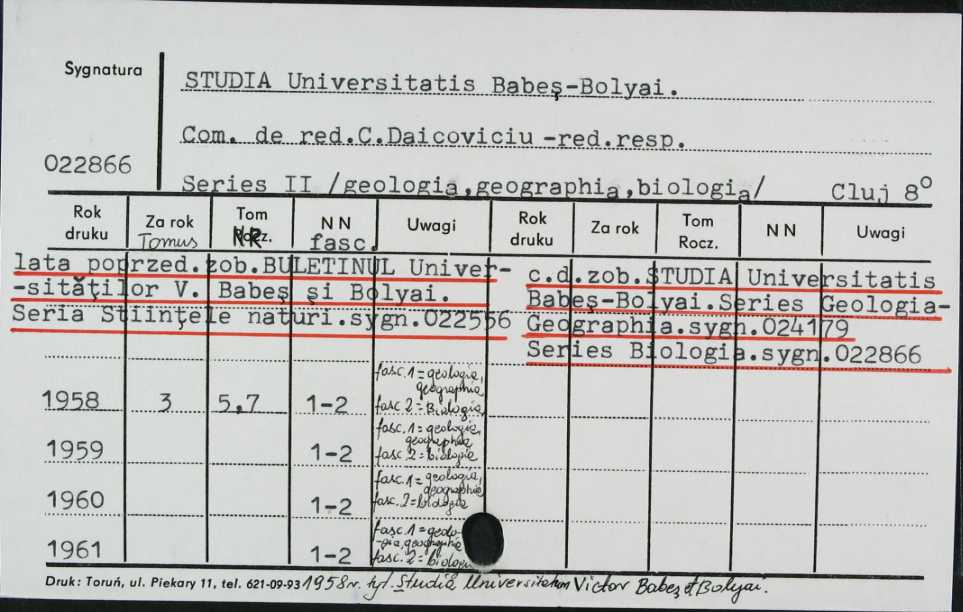 Sygnatura
STUDIA Universitatis Babeş-Bolyai.
Com. de red.C.Daicoviciu -red.resp.
022866
Series II /geologia,geographia,biologia/ Cluj 8°
Rok druku Za rok Tomus Tom Rocz. NR NN fasc. Uwagi Rok druku Za rok Tom Rocz. NN Uwagi
lata poprzed.zob.BULETINUL Univer-
-sităţilor V. Babeş şi Bolyai.
Seria Stiinţele naturi.sygn.022556
c.d.zob.STUDIA Universitatis
Babeş-Bolyai.Series Geologia-
Geographia.sygn.024179
Series Biologia.sygn.022866
fasc.1=geologia,
geographia
1958 3 5,7 1-2 fasc.2=Biologia,
fasc.1=geologia,
geographia
1959 1-2 fasc.2=biologia
fasc.1=geologia,
geographia
1960 1-2 fasc.2=biologia
fasc.1=geolo-
-gia,geographia
1961 1-2 fasc.2=biologia
Druk: Toruń, ul. Piekary 11, tel. 621-09-93 1958r. tyt. Studia Universitatum Victor Babeş et Bolyai.